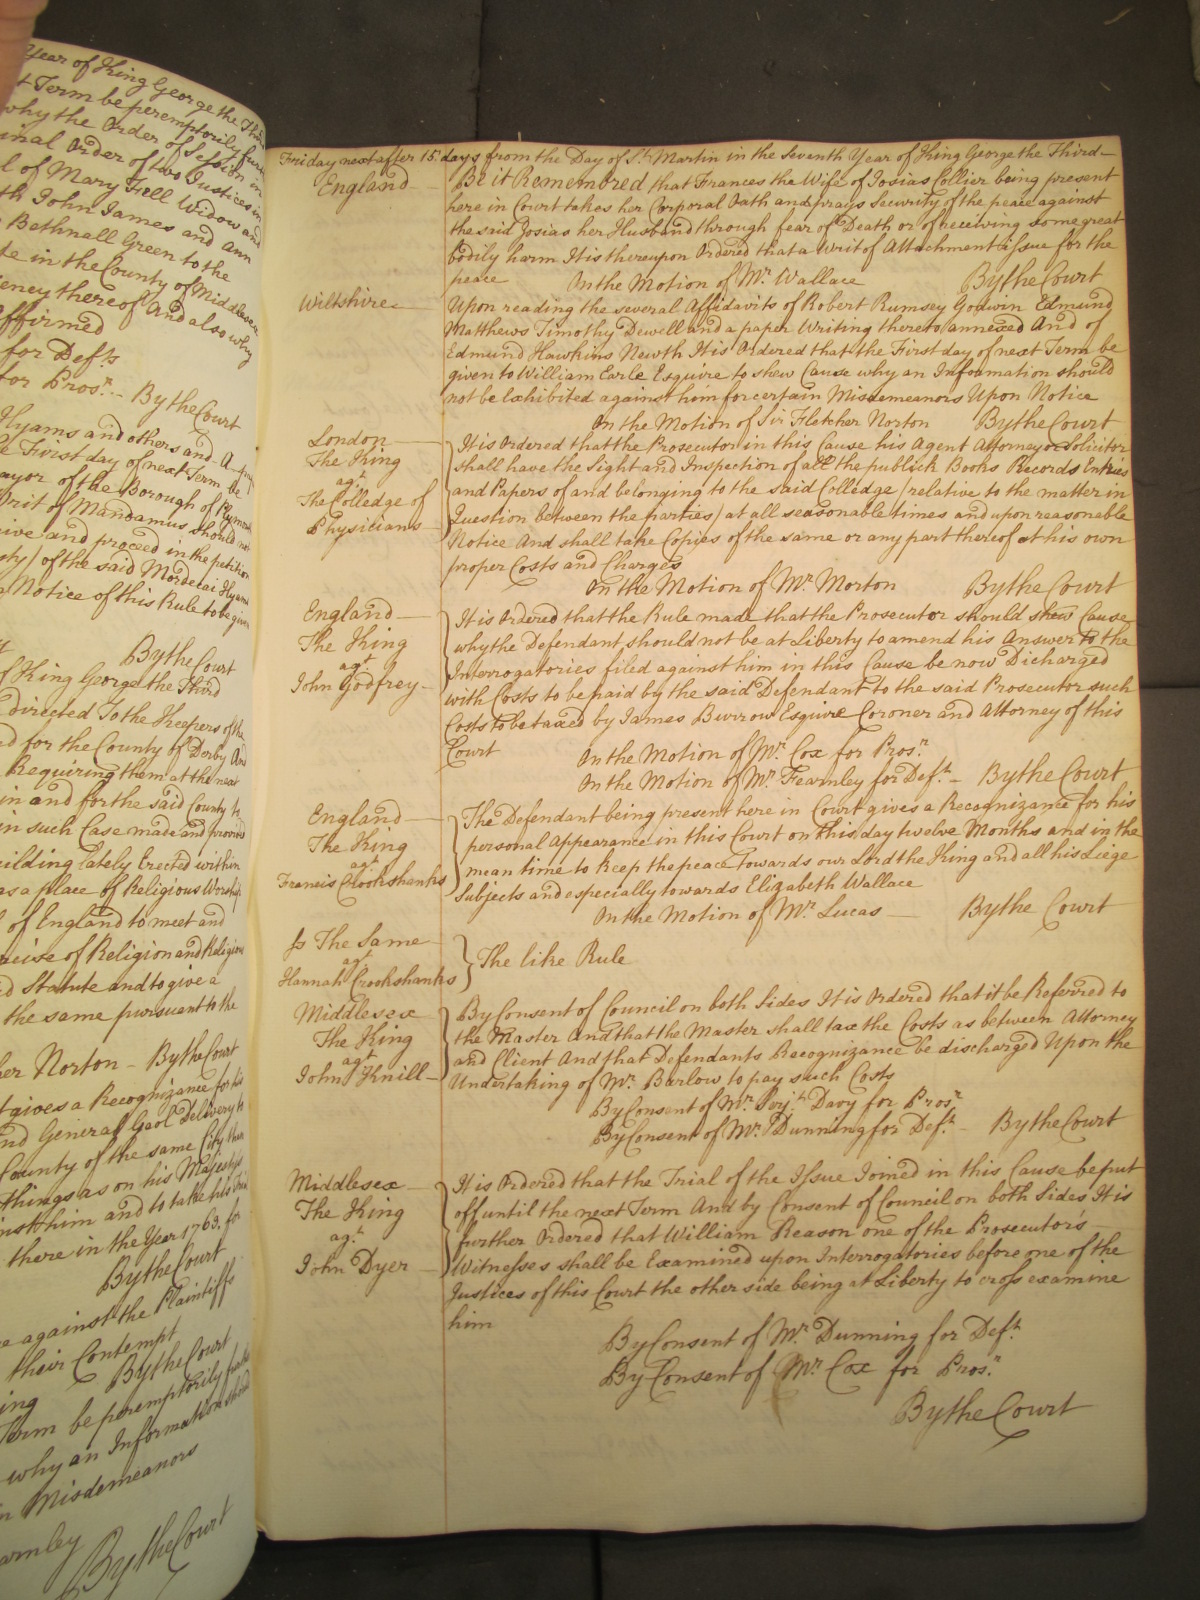 Year of King George the Third
t Term be peremptorily further
why the Order of Session in
inal Order of two Justices in
l of Mary Fell Widow and
th John James and Ann
Bethnall Green to the
te in the County of Middlesex
iency thereof And also why
ffirmed
for Def.ts
for Pros.r - By the Court
Hyams and others and
e First day of next Term the
ayor of the Borough of
Writ of Mandamus should not
ive and proceed in the petition
of the said Mordecai
Notice of this Rule to be given
By the Court
of King George the Third
directed To the Keepers of the
d for the County of Derby And
Requiring them at the next
in and for the said County to
in such Case made and provided
uilding lately Erected within
as a place of Religious Worship
of England to meet and
ercise of Religion and Religious
d Statute and to give a
the same pursuant to the
er Norton - By the Court
t gives a Recognizance for his
nd General Gaol Delivery
County of the same City then
things as on his Majestys
inst him and to take his
there in the Year 1763. for
By the Court
e against the Plaintiffs
their Contempt
ing By the Court
Term be peremptorily further
why an Information should
n Misdemeanors
arnley By the Court
Friday next after 15 days from the Day of S.t Martin in the Seventh Year of King George the Third
England Be it Remembred that Frances the Wife of Josias Collier being present
here in Court takes her Corporal Oath and prays Security of the peace against
the said Josias her Husband through fear of Death or of receiving some great
bodily harm It is thereupon Ordered that a Writ of Attachment issue for the
peace On the Motion of M.r Wallace By the Court
Wiltshire Upon reading the several Affidavits of Robert Rumsey Godwin Edmund
Matthews Timothy Dewell and a paper Writing thereto annexed And of
Edmund Hawkins Newth It is Ordered that the First day of next Term be
given to William Earle Esquire to shew Cause why an Information should
not be Exhibited against him for certain Misdemeanors Upon Notice
On the Motion of Sir Fletcher Norton By the Court
London It is Ordered that the Prosecutor in this Cause his Agent Attorney or Solicitor
The King shall have the Sight and Inspection of all the publick Books Records Entries
ag.t
The Colledge of and Papers of and belonging to the said Colledge (relative to the matter in
Physicians Question between the parties) at all seasonable times and upon reasonable
Notice And shall take Copies of the same or any part thereof at his own
proper Costs and Charges
On the Motion of M.r Morton By the Court
England It is Ordered that the Rule made that the Prosecutor should shew Cause
The King why the Defendant should not be at Liberty to amend his Answer to the
ag.t
John Godfrey Interrogatories filed against him in this Cause be now Dicharged
with Costs to be paid by the said Defendant to the said Prosecutor such
Costs to be taxed by James Burrow Esquire Coroner and Attorney of this
Court On the Motion of M.r Cox for Pros.r
On the Motion of M.r Fearnley for Def.t - By the Court
England The Defendant being present here in Court gives a Recognizance for his
The King personal Appearance in this Court on this day twelve Months and in the
ag.t
Francis Crookshanks mean time to keep the peace towards our Lord the King and all his Liege
Subjects and especially towards Elizabeth Wallace
On the Motion of M.r Lucas By the Court
Js The Same
ag.t The like Rule
Hannah Crookshanks
Middlesex By Consent of Council on both Sides It is Ordered that it be Referred to
The King the Master And that the Master shall tax the Costs as between Attorney
ag.t
John Knill and Client And that Defendants Recognizance be discharged Upon the
Undertaking of M.r Barlow to pay such Costs
By Consent of M.r Serj.t Davy for Pros.r
By Consent of M.r Dunning for Def.t - By the Court
Middlesex It is Ordered that the Trial of the Issue Joined in this Cause be put
The King off until the next Term And by Consent of Council on both Sides It is
ag.t further Ordered that William Reason one of the Prosecutor's
John Dyer Witnesses shall be Examined upon Interrogatories before one of the
Justices of this Court the other side being at Liberty to cross examine
him
By Consent of M.r Dunning for Def.t
By Consent of M.r Cox for Pros.r
By the Court